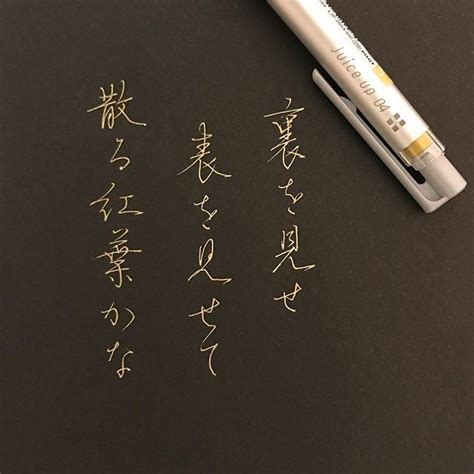 裏を見せ
表を見せて
散る紅葉かな
Juice up 04